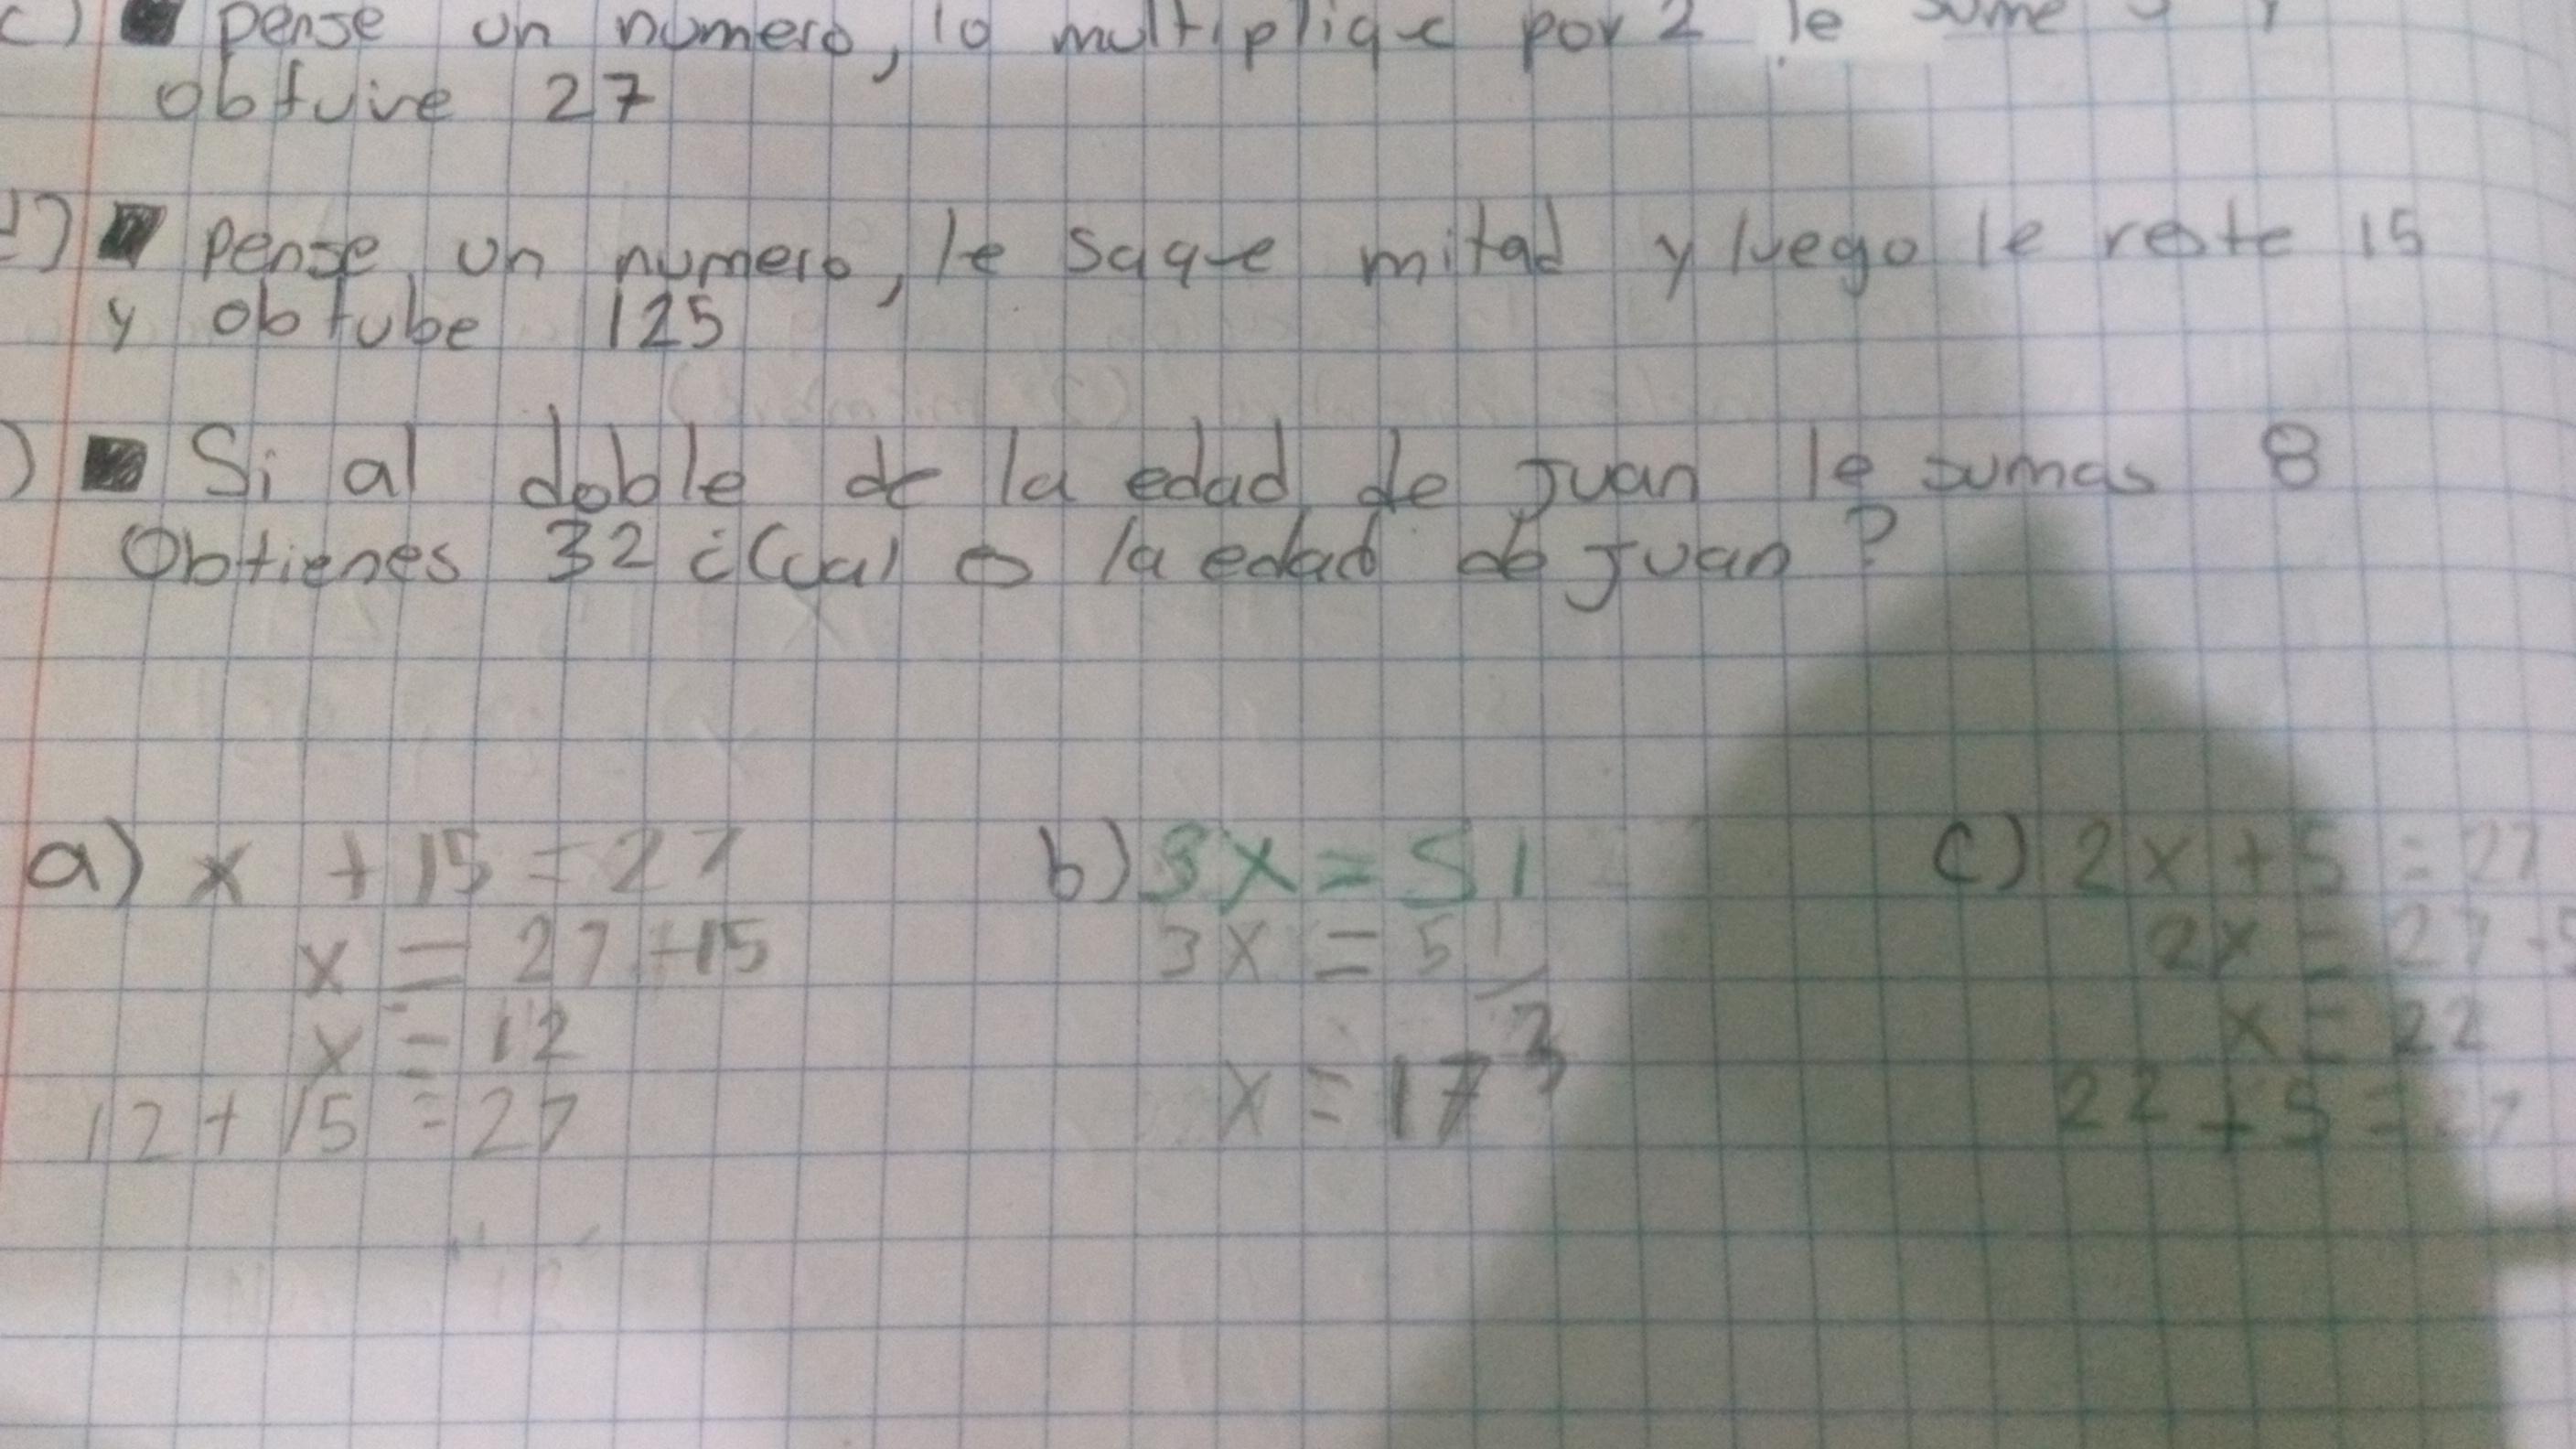 c) pense un numero, lo multiplique por 2 le sume
obtuive 27
pense un numero, le saque mitad y luego le reste 15
y obtube 125
) Si al doble de la edad de Juan le sumas 8
Obtienes 32 ¿Cual es la edad de Juan?
a) x + 15 = 27 b) 3x = 51 c) 2x + 5 = 27
x = 27 - 15 3x = 51 2x = 27 - 5
x = 12 3 x = 22
12 + 15 = 27 x = 17 22 + 5 =